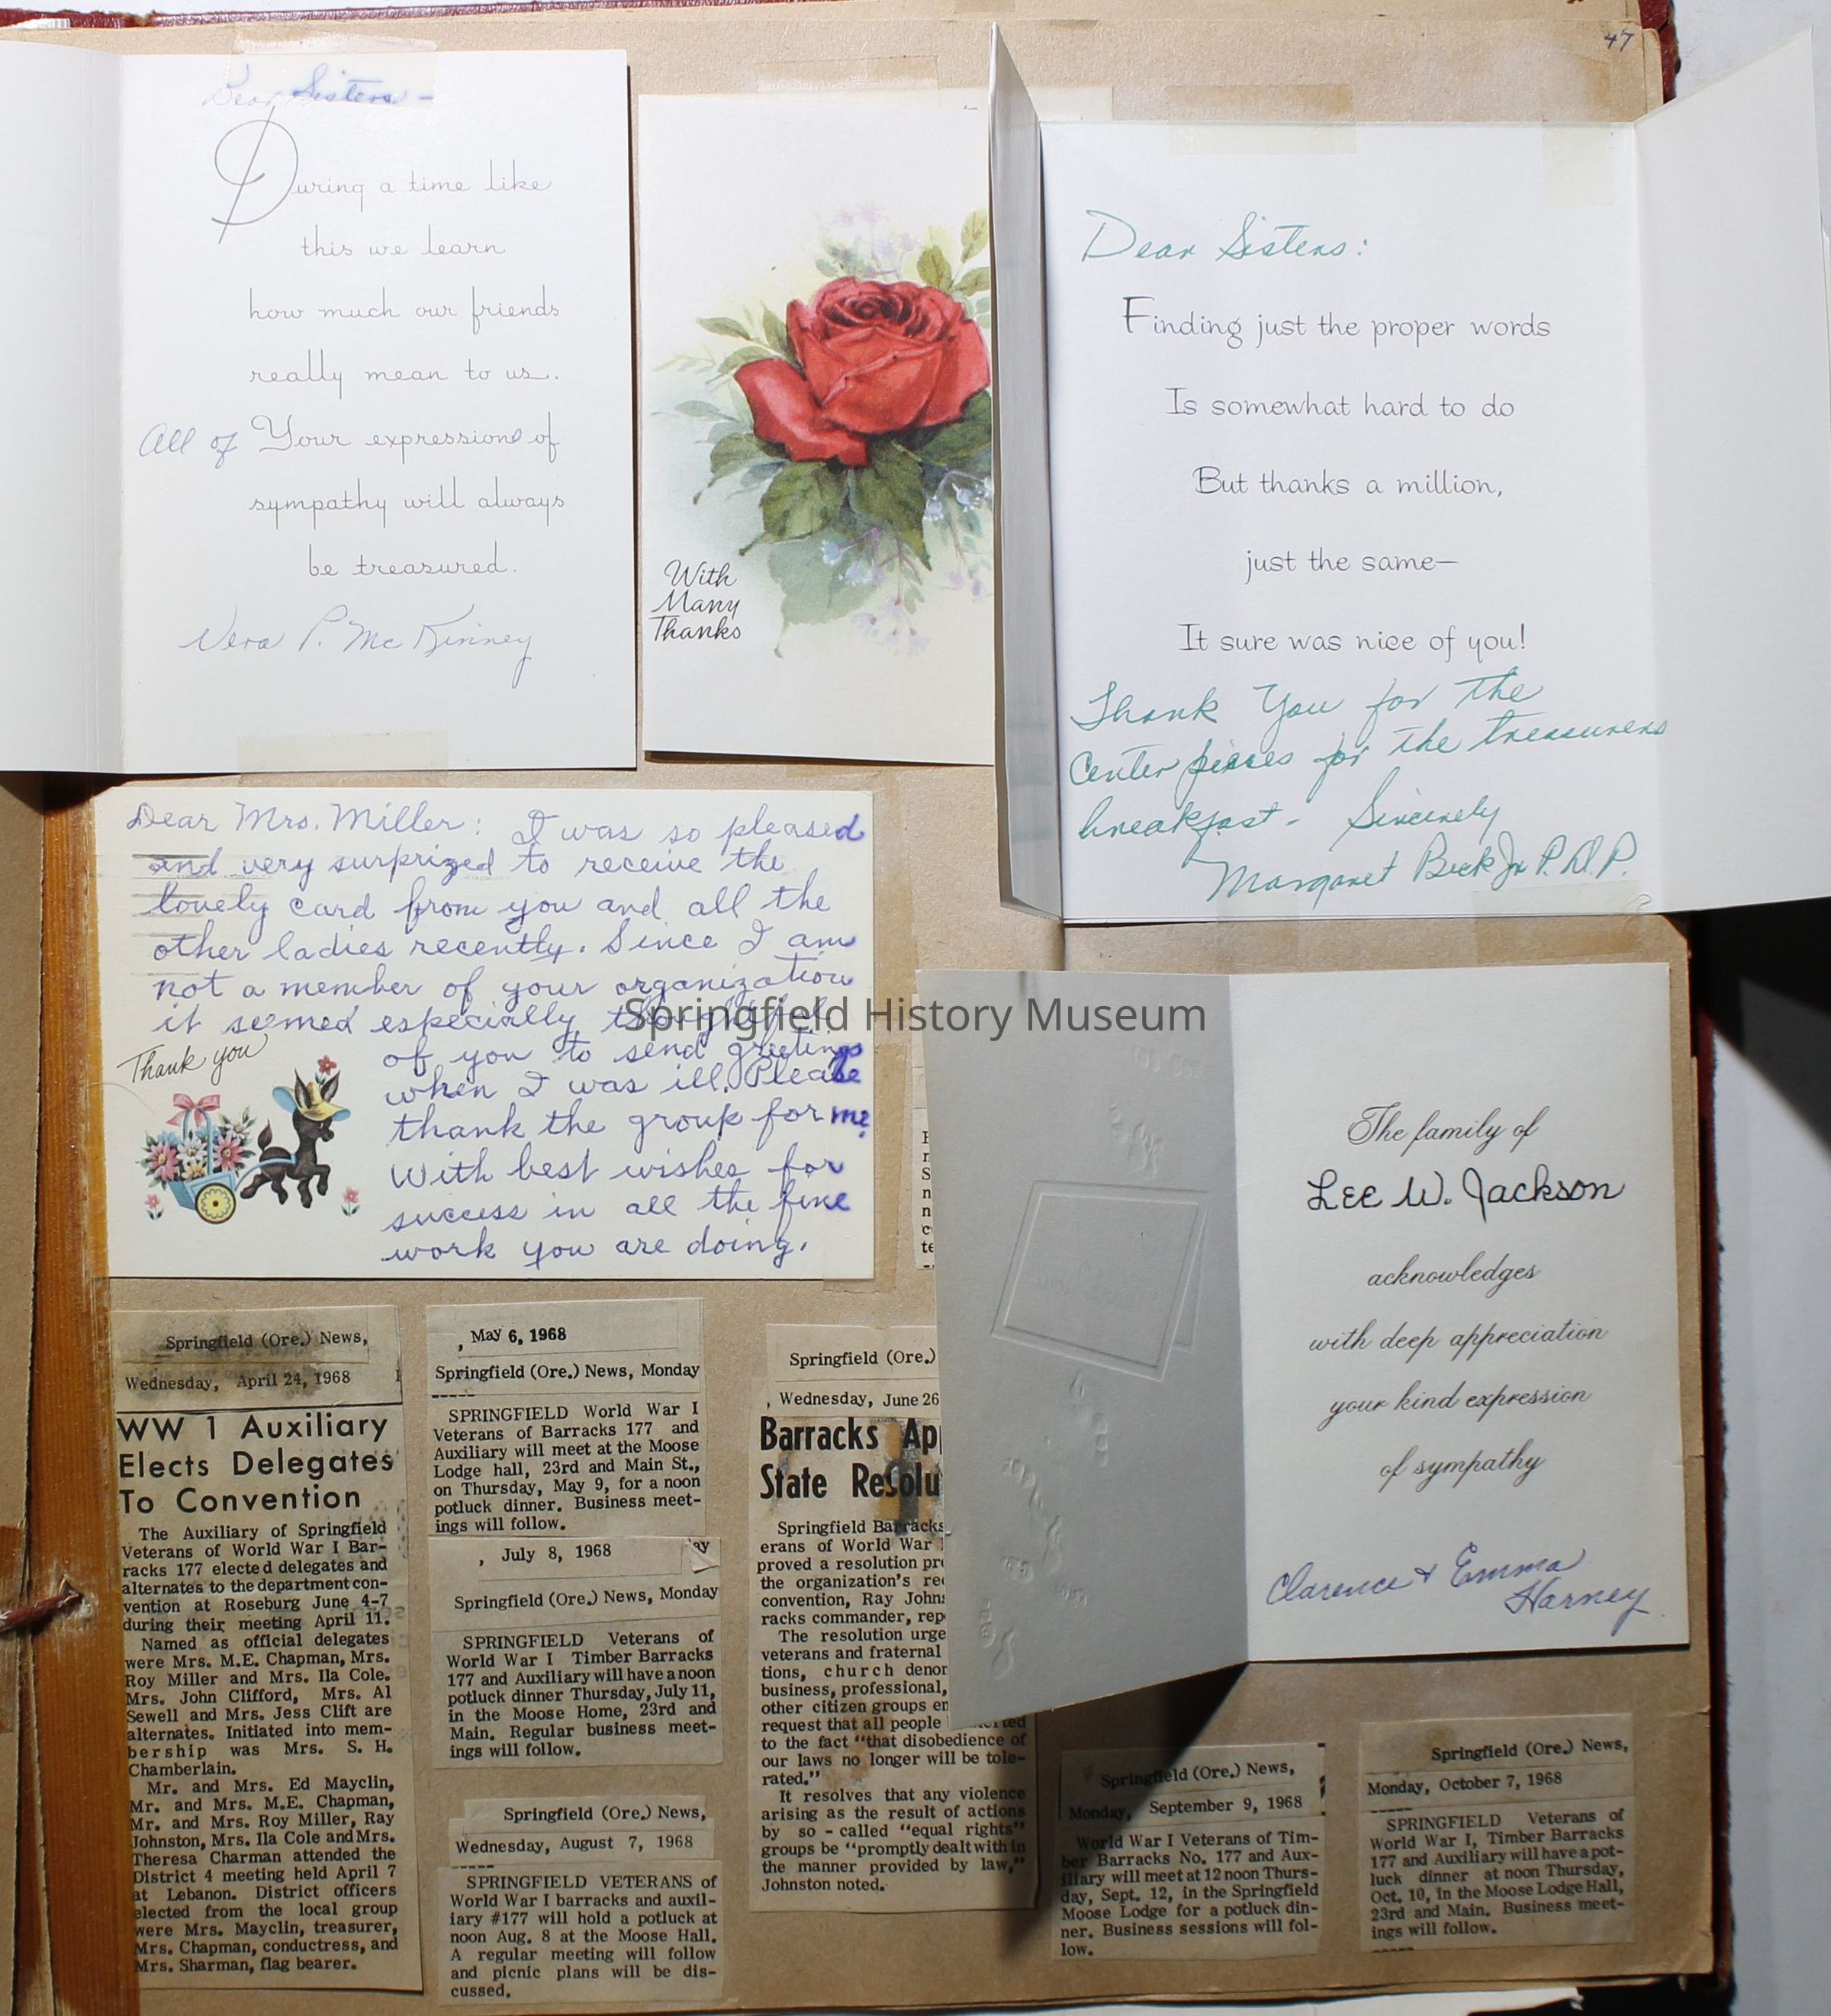 47
Dear Sisters -
During a time like
this we learn
how much our friends
really mean to us.
All of Your expressions of
sympathy will always
be treasured.
Vera P. McKinney
With
Many
Thanks
Dear Sisters:
Finding just the proper words
Is somewhat hard to do
But thanks a million,
just the same—
It sure was nice of you!
Thank You for the
center pieces for the treasurers
breakfast - Sincerely
Margaret Beck Jr P.D.P.
Dear Mrs. Miller: I was so pleased
and very surprized to receive the
lovely card from you and all the
other ladies recently. Since I am
not a member of your organization
it seemed especially thoughtful
of you to send greetings
when I was ill. Please
thank the group for me.
With best wishes for
success in all the fine
work you are doing.
Thank you
Springfield History Museum
The family of
Lee W. Jackson
acknowledges
with deep appreciation
your kind expression
of sympathy
Clarence & Emma
Harney
Springfield (Ore.) News,
Wednesday, April 24, 1968
WW 1 Auxiliary
Elects Delegates
To Convention
The Auxiliary of Springfield
Veterans of World War I Bar-
racks 177 elected delegates and
alternates to the department con-
vention at Roseburg June 4-7
during their meeting April 11.
Named as official delegates
were Mrs. M.E. Chapman, Mrs.
Roy Miller and Mrs. Ila Cole.
Mrs. John Clifford, Mrs. Al
Sewell and Mrs. Jess Clift are
alternates. Initiated into mem-
bership was Mrs. S. H.
Chamberlain.
Mr. and Mrs. Ed Mayclin,
Mr. and Mrs. M.E. Chapman,
Mr. and Mrs. Roy Miller, Ray
Johnston, Mrs. Ila Cole and Mrs.
Theresa Charman attended the
District 4 meeting held April 7
at Lebanon. District officers
elected from the local group
were Mrs. Mayclin, treasurer,
Mrs. Chapman, conductress, and
Mrs. Sharman, flag bearer.
, May 6, 1968
Springfield (Ore.) News, Monday
SPRINGFIELD World War I
Veterans of Barracks 177 and
Auxiliary will meet at the Moose
Lodge hall, 23rd and Main St.,
on Thursday, May 9, for a noon
potluck dinner. Business meet-
ings will follow.
, July 8, 1968
ay
Springfield (Ore.) News, Monday
SPRINGFIELD Veterans of
World War I Timber Barracks
177 and Auxiliary will have a noon
potluck dinner Thursday, July 11,
in the Moose Home, 23rd and
Main. Regular business meet-
ings will follow.
Springfield (Ore.) News,
Wednesday, August 7, 1968
SPRINGFIELD VETERANS of
World War I barracks and auxil-
iary #177 will hold a potluck at
noon Aug. 8 at the Moose Hall.
A regular meeting will follow
and picnic plans will be dis-
cussed.
Springfield (Ore.)
, Wednesday, June 26
Barracks Ap
State Resolu
Springfield Barracks
erans of World War
proved a resolution pr
the organization's re
convention, Ray Johns
racks commander, rep
The resolution urge
veterans and fraternal
tions, church denom
business, professional,
other citizen groups en
request that all people
to the fact "that disobedience of
our laws no longer will be tole-
rated."
It resolves that any violence
arising as the result of actions
by so-called "equal rights"
groups be "promptly dealt with in
the manner provided by law,"
Johnston noted.
Springfield (Ore.) News,
Monday, September 9, 1968
World War I Veterans of Tim-
ber Barracks No. 177 and Aux-
iliary will meet at 12 noon Thurs-
day, Sept. 12, in the Springfield
Moose Lodge for a potluck din-
ner. Business sessions will fol-
low.
Springfield (Ore.) News,
Monday, October 7, 1968
SPRINGFIELD Veterans of
World War I, Timber Barracks
177 and Auxiliary will have a pot-
luck dinner at noon Thursday,
Oct. 10, in the Moose Lodge Hall,
23rd and Main. Business meet-
ings will follow.